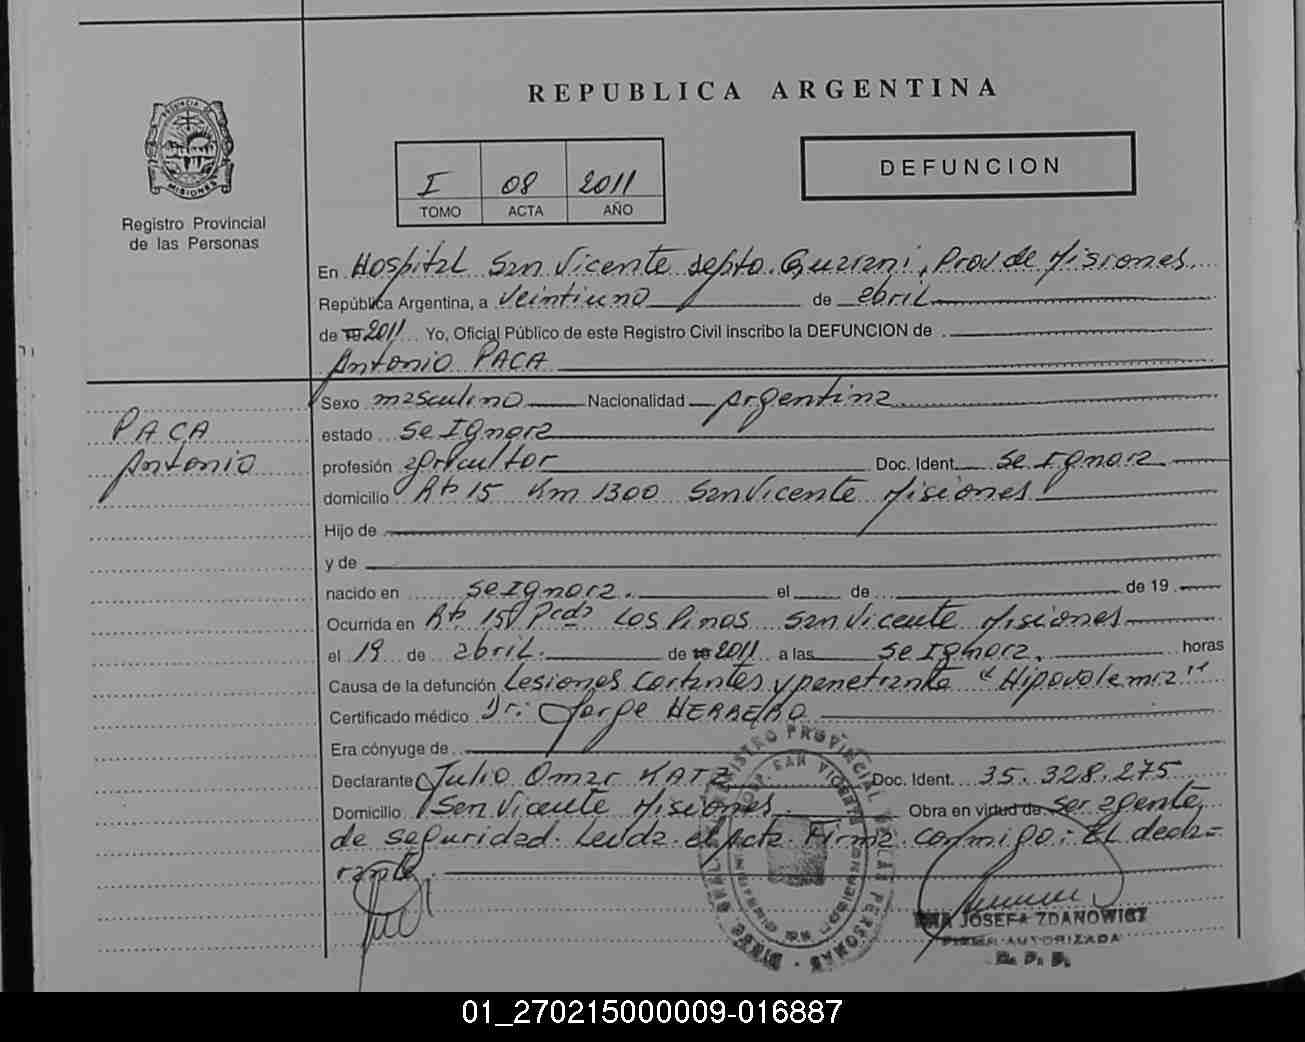 REPUBLICA ARGENTINA
PROVINCIA DE
MISIONES
Registro Provincial
de las Personas
I 08 2011
TOMO ACTA AÑO
DEFUNCION
En Hospital San Vicente depto. Guarani, Prov de Misiones
República Argentina, a veintiuno de abril
de 19 2011 Yo, Oficial Público de este Registro Civil inscribo la DEFUNCION de
Antonio PACA
PACA
Antonio
Sexo masculino Nacionalidad Argentina
estado se Ignora
profesión agricultor Doc. Ident. se Ignora
domicilio Rta 15 Km 1300 San Vicente Misiones
Hijo de
y de
nacido en se Ignora. el de de 19
Ocurrida en Rta 15 Pcdo Los Pinos San Vicente Misiones
el 19 de abril. de 19 2011 a las se Ignora. horas
Causa de la defunción Lesiones cortantes y penetrante "Hipovolemia"
Certificado médico Dr: Jorge HERRERO
Era cónyuge de
Declarante Julio Omar KATZ Doc. Ident. 35.328.275
Domicilio San Vicente Misiones. Obra en virtud de Ser agente
de seguridad. Leida el Acta Firma conmigo: EL decla=
rante.
REGISTRO PROVINCIAL DE LAS PERSONAS
HOSP. SAN VICENTE
JOSEFA ZDANOWICZ
FIRMA AUTORIZADA
01_270215000009-016887